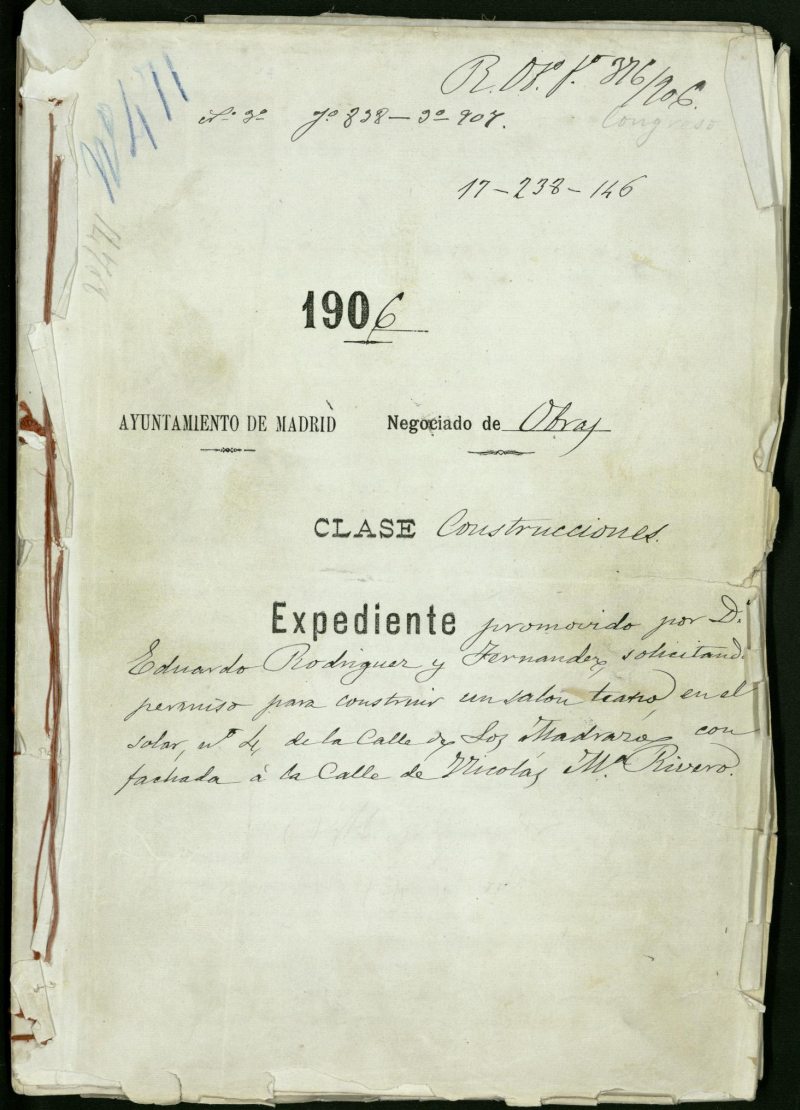 Nº 471
R. Oº. fº 376/906.
Congreso
Nº 3º Jº 338 – 3º 907.
17 – 238 – 146
1906
AYUNTAMIENTO DE MADRID Negociado de Obras
CLASE Construcciones.
Expediente promovido por Dn.
Eduardo Rodriguez y Fernandez, solicitando
permiso para construir un salón teatro, en el
solar, nº 4, de la Calle de Los Madrazo con
fachada á la Calle de Nicolás Mª Rivero.